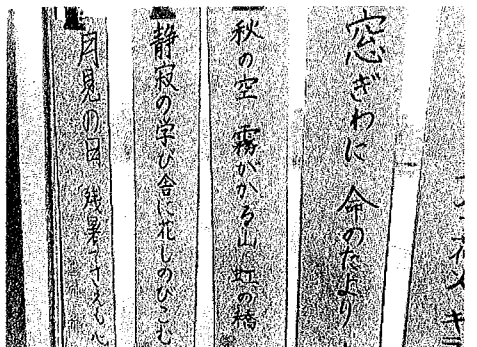 窓ぎわに 命のたより
秋の空 霧がかる山 虹の橋
静寂の学び舎に花しのびこむ
月見の日 残暑でさえも心